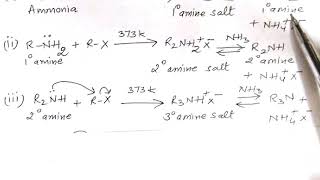 Ammonia 1° amine salt 1° amine
+ NH₄⁺X⁻
(ii) R–N̈H₂ + R–X —373k→ R₂NH₂⁺X⁻ ⇌NH₃ R₂NH
1° amine 2° amine salt 2° amine
+ NH₄⁺X⁻
(iii) R₂N̈H + R–X —373k→ R₃NH⁺X⁻ ⇌NH₃ R₃N +
2° amine 3° amine salt NH₄⁺X⁻